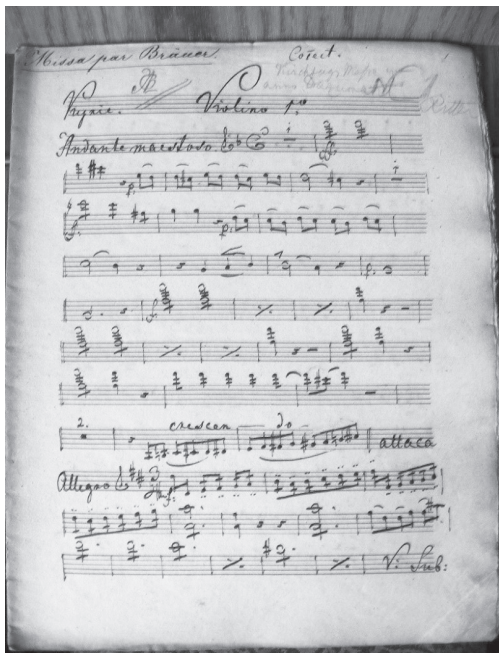 Missa par Bräuer. Coñet. 1
Kyrie. Violino 1mo
Andante maestoso. 1
1
2. crescen do attaca
Allegro 3
f.
V: Sub: